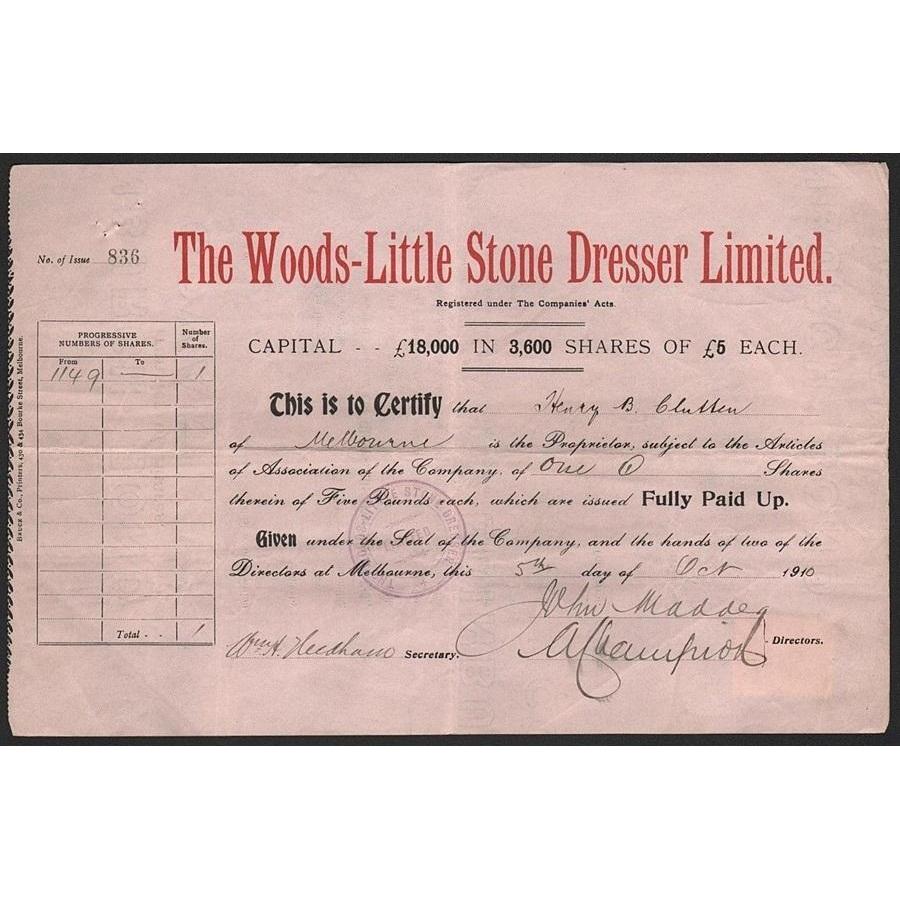 No. of Issue 836
The Woods-Little Stone Dresser Limited.
Registered under The Companies' Acts.
CAPITAL - - £18,000 IN 3,600 SHARES OF £5 EACH.
PROGRESSIVE NUMBERS OF SHARES. Number of Shares.
From To
1149 — 1
Total - - 1
This is to Certify that Henry B. Clutten
of Melbourne is the Proprietor, subject to the Articles
of Association of the Company, of One Shares
therein of Five Pounds each, which are issued Fully Paid Up.
Given under the Seal of the Company, and the hands of two of the
Directors at Melbourne, this 5th day of Oct 1910
John Madden
A Champion Directors.
Wm. H. Needham Secretary.
Printers, 430 & 434 Bourke Street, Melbourne.